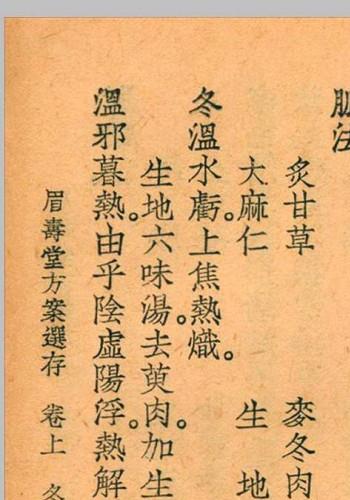 脈法
炙甘草 麥冬肉
大麻仁 生地
冬溫水虧。上焦熱熾。
生地六味湯。去萸肉。加生
溫邪暮熱。由乎陰虛陽浮。熱解
眉壽堂方案選存 卷上 冬